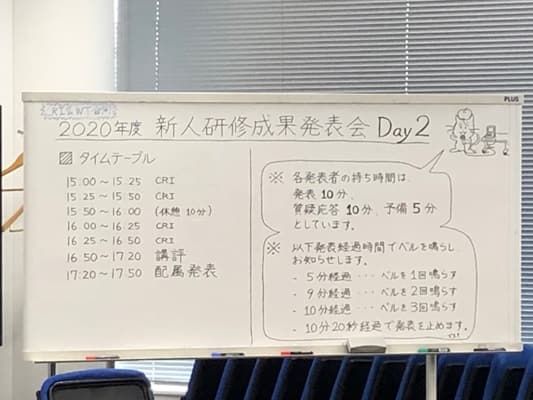 PLUS
2020年度 新人研修成果発表会 Day2
タイムテーブル
15:00～15:25 CRI
15:25～15:50 CRI
15:50～16:00 (休憩 10分)
16:00～16:25 CRI
16:25～16:50 CRI
16:50～17:20 講評
17:20～17:50 配属発表
※ 各発表者の持ち時間は、
発表10分、
質疑応答10分、予備5分
としています。
※ 以下発表経過時間でベルを鳴らし
お知らせします。
- 5分経過 ･･･ ベルを1回鳴らす
- 9分経過 ･･･ ベルを2回鳴らす
- 10分経過 ･･･ ベルを3回鳴らす
- 10分20秒経過で発表を止めます。